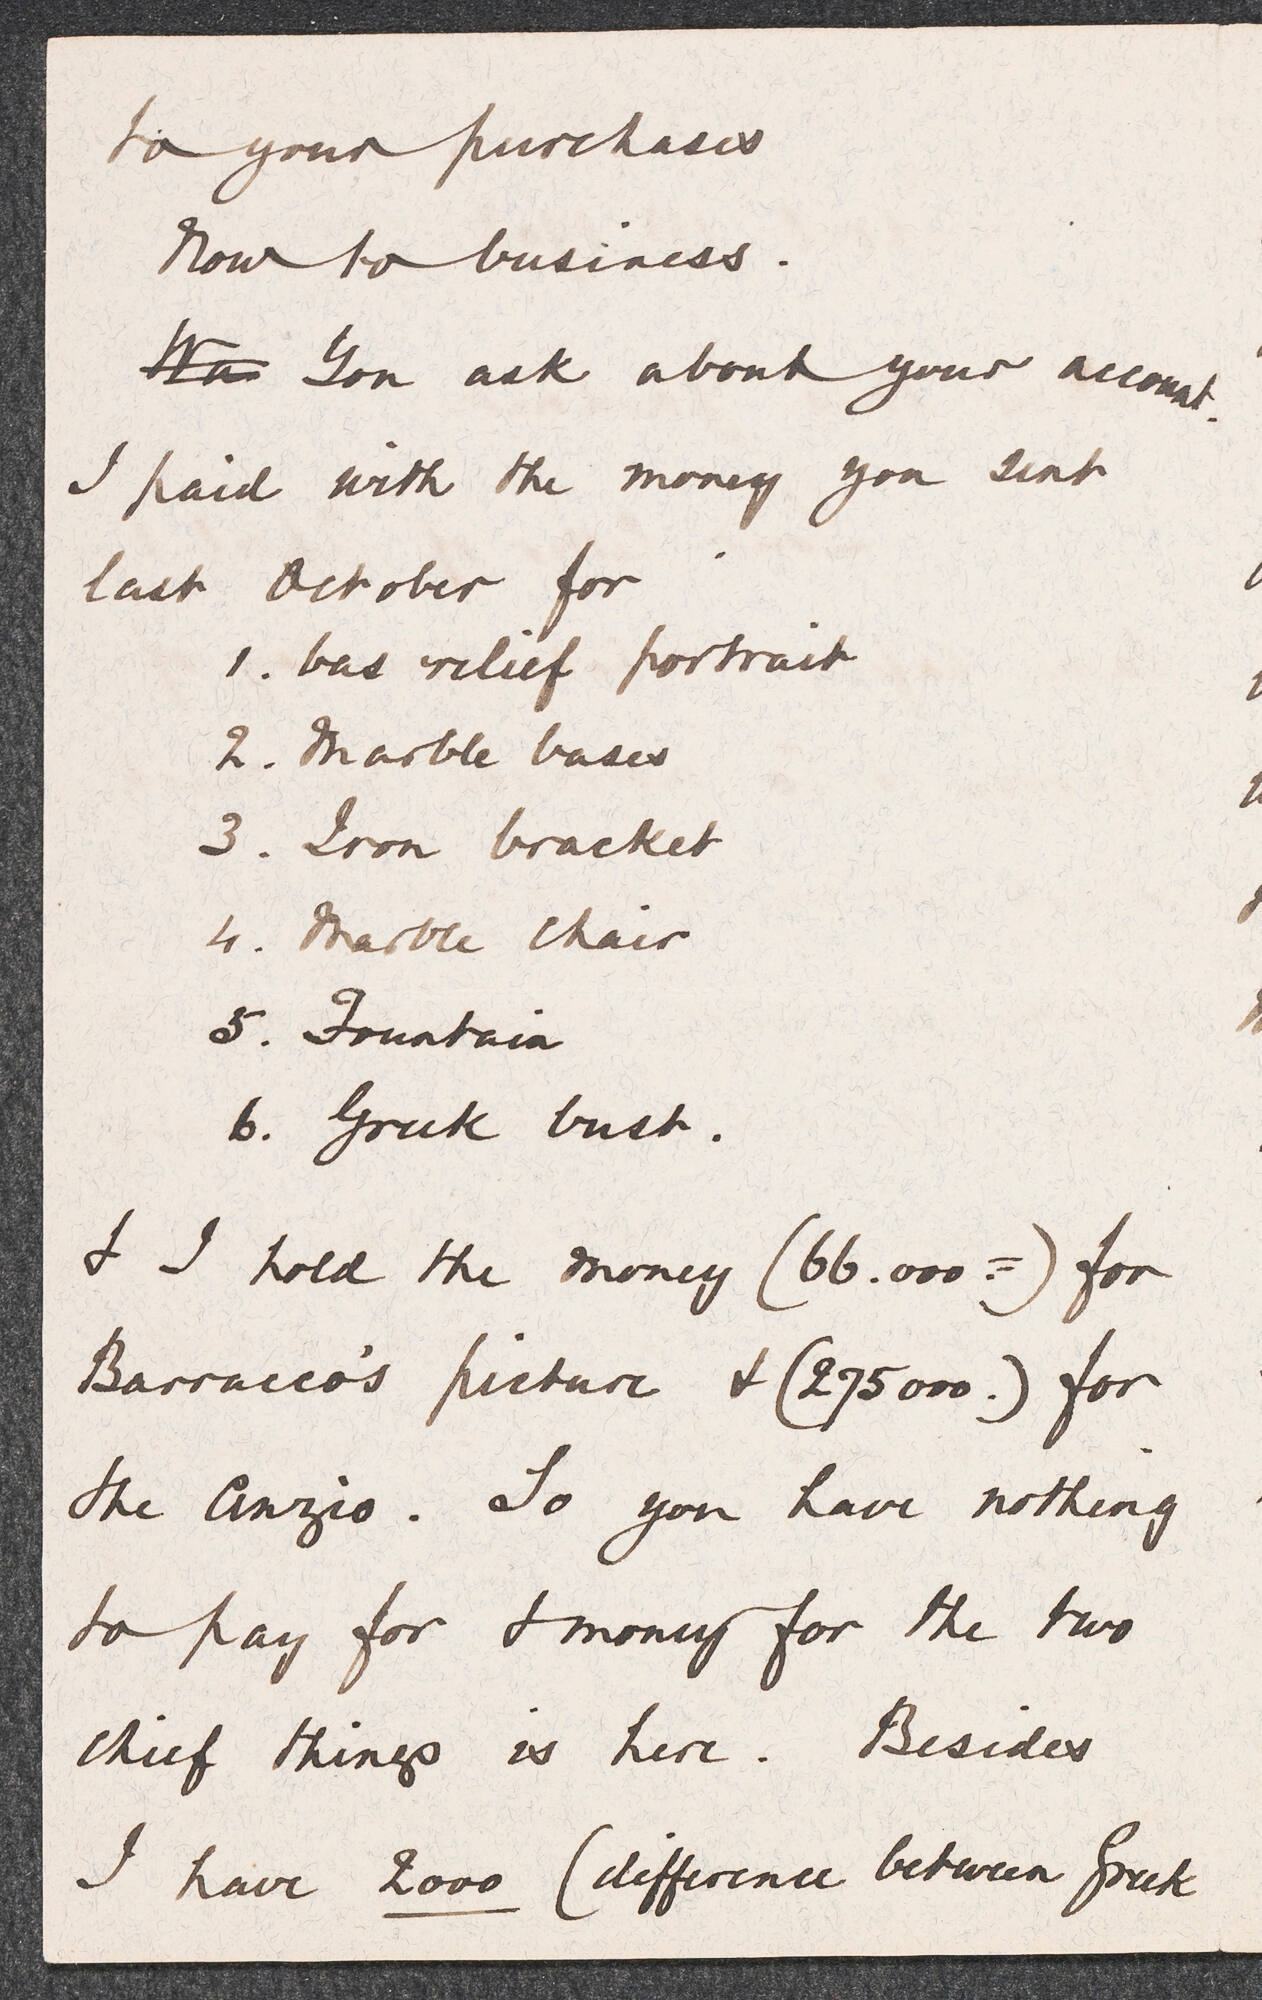 to your purchases
Now to business.
Wa You ask about your account.
I paid with the money you sent
last October for
1. bas relief portrait
2. Marble bases
3. Iron bracket
4. Marble chair
5. Fountain
6. Greek bust.
& I hold the money (66.000 =) for
Barracco's picture & (275000.) for
the Anzio. So you have nothing
to pay for & money for the two
chief things is here. Besides
I have 2000 (difference between Greek